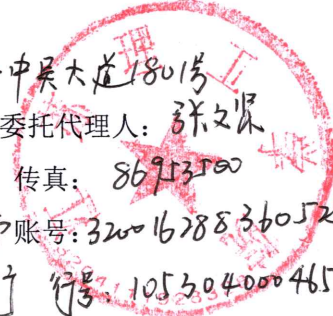 中吴大道1801号
委托代理人：张文保
传真：86953500
账号：32001628836052
行 行号：105304000465
理工